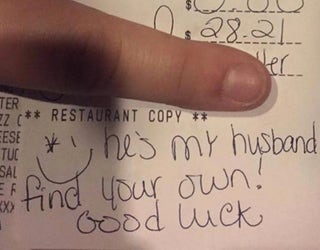 $ 28.21
TER
** RESTAURANT COPY **
ZZ
EESE
he's my husband
SAL
find your own!
Good luck